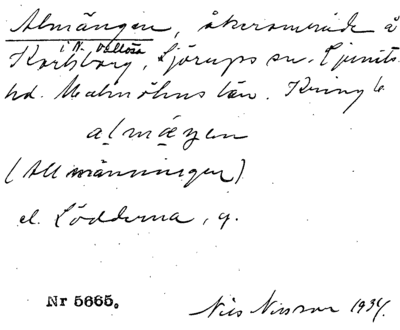 Almängen, åkerområde å
i N. Vallösa
Karlsborg, Sjörups sn. Ljunits
hd. Malmöhus län. Kring 6
almägen
(Allmänningen)
el. Lödderna, g.
Nr 5665. Nils Nilsson 1934.